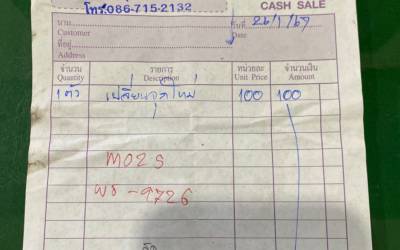 โทร.086-715-2132
CASH SALE
นาม
Customer
วันที่ 26/1/67
Date
ที่อยู่
Address
จำนวน รายการ หน่วยละ จำนวนเงิน
Quantity Description Unit Price Amount
1 ตัว เปลี่ยนจุดใหม่ 100 100
M02S
พร - 9726